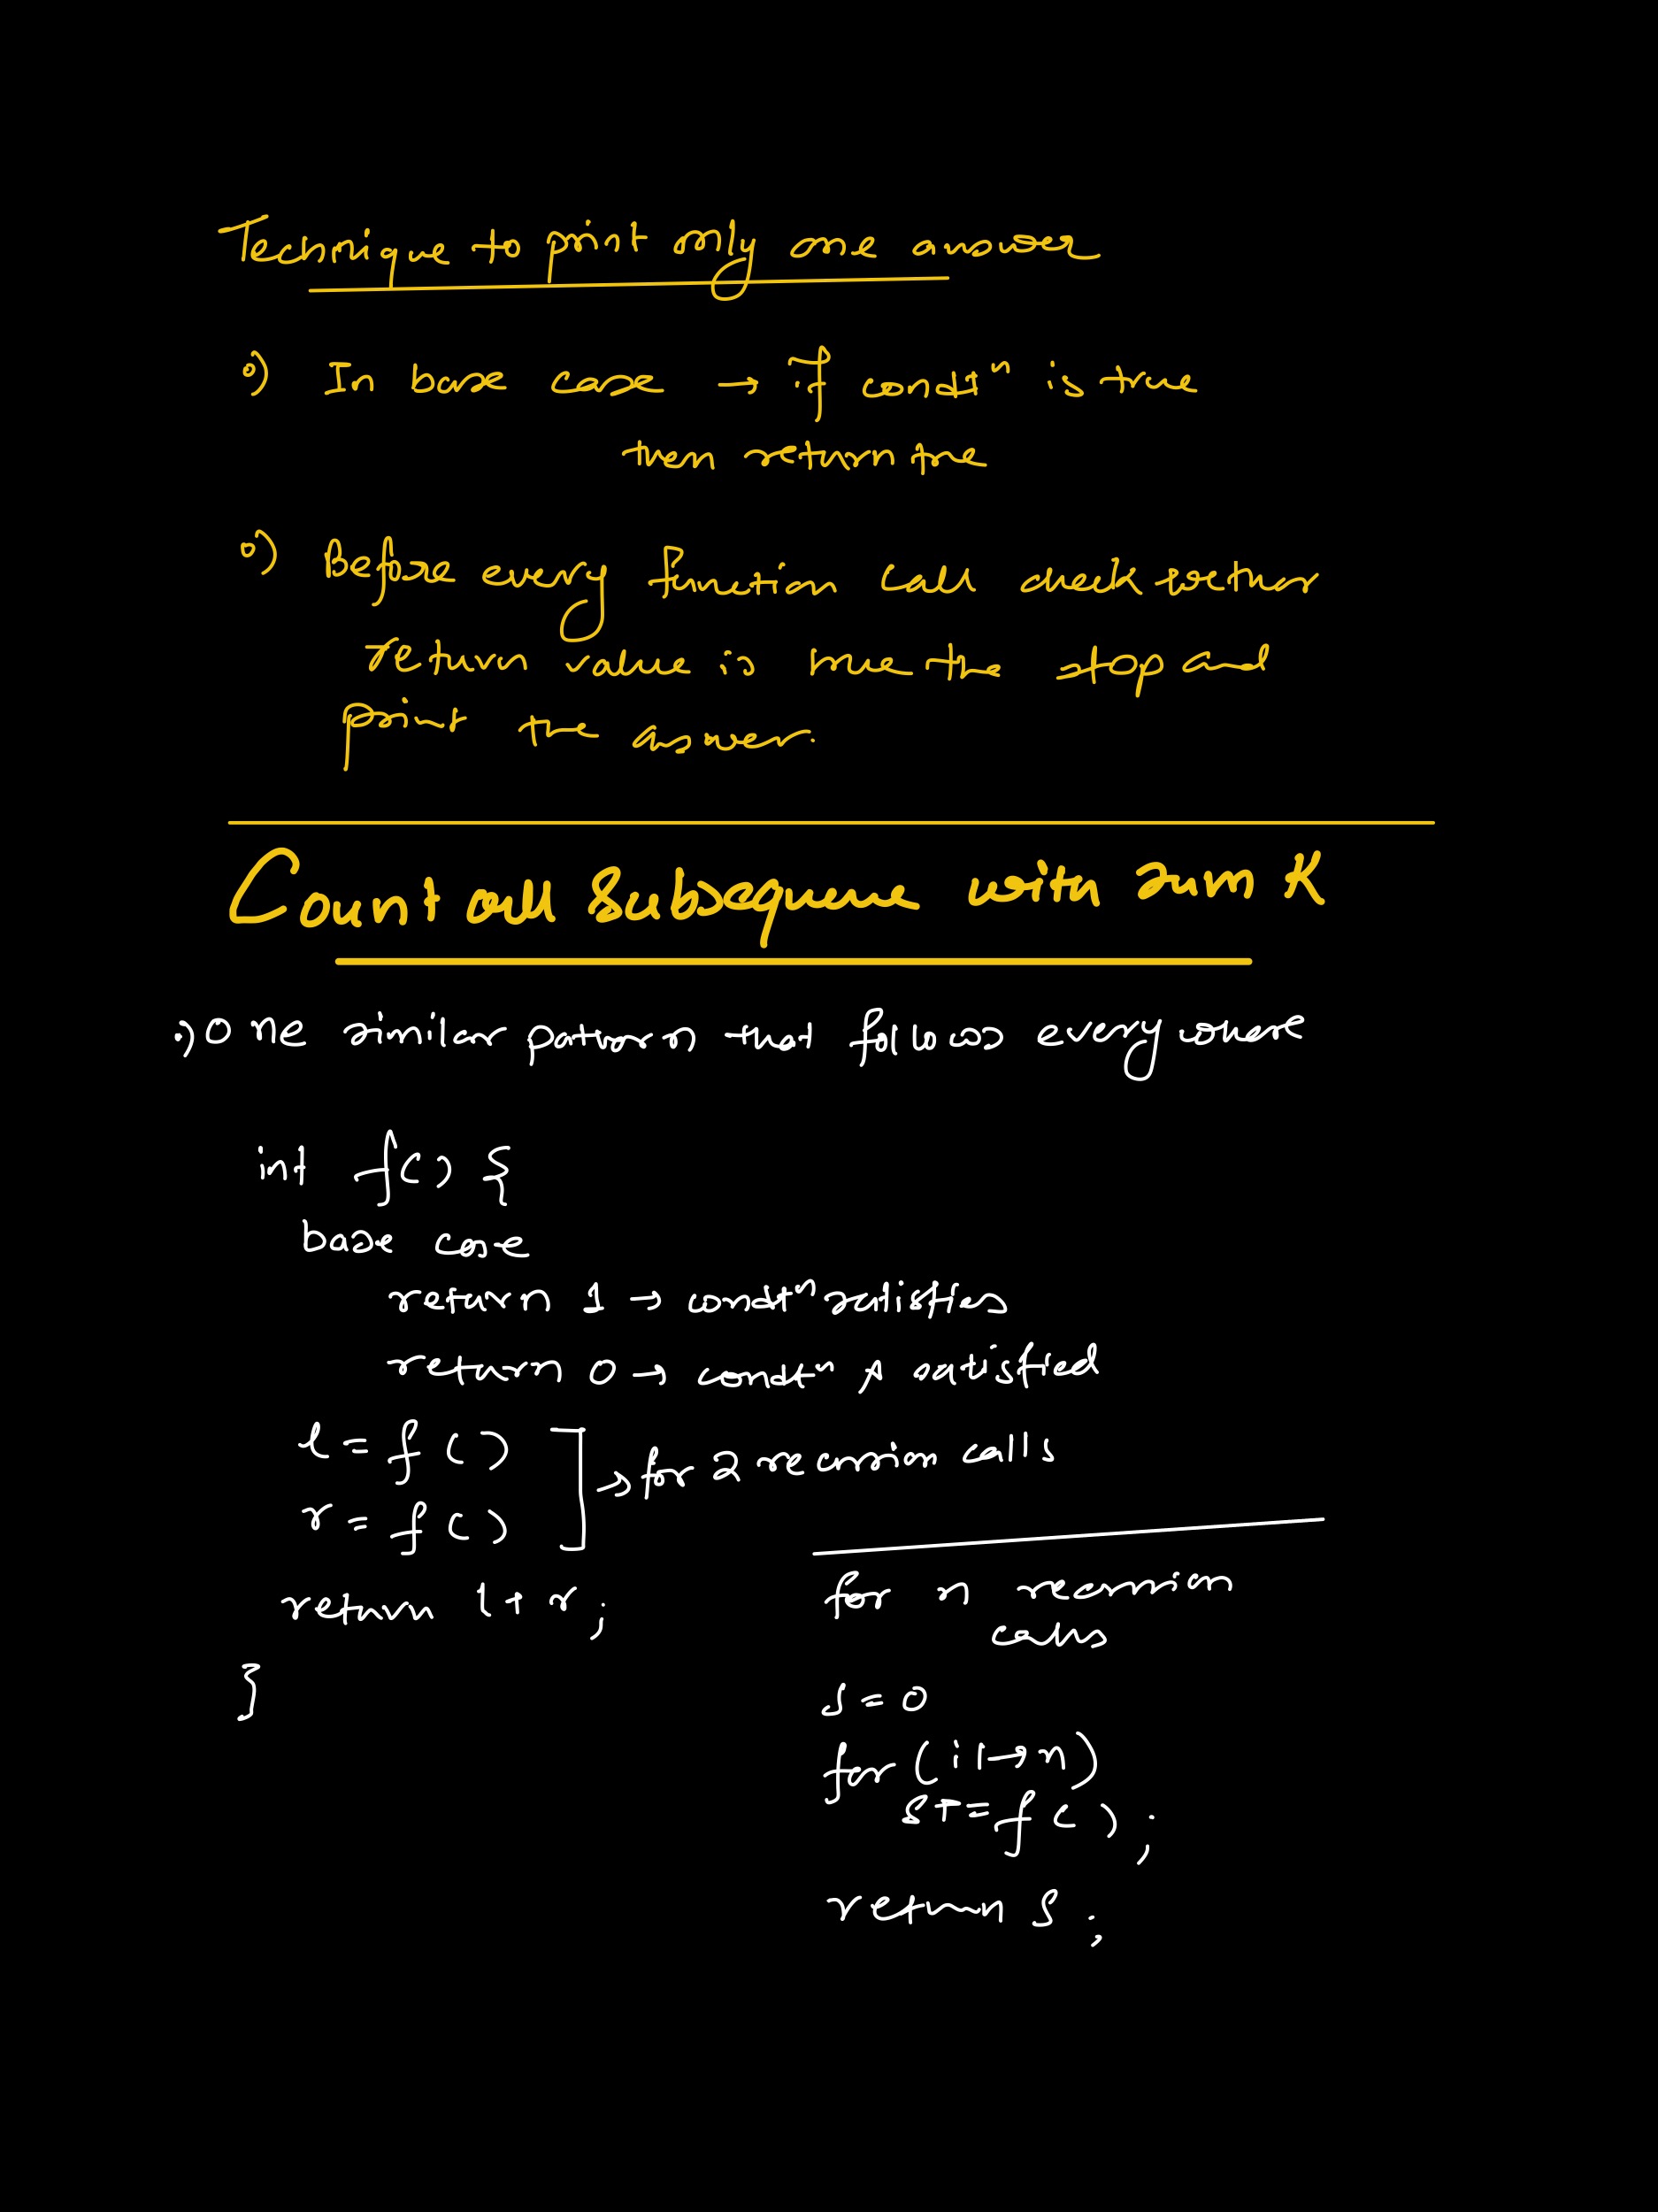 Technique to print only one answer
°) In base case → if condtⁿ is true
then return true
°) Before every function call check wether
return value is true the stop and
print the answer.
Count all Subsequence with sum K
·) One similar pattern that follows everywhere
int f() {
base case
return 1 → condtⁿ satisfies
return 0 → condtⁿ satisfied
l = f ( )
r = f ( )
→ for 2 recursion calls
return l + r ;
}
for n recursion
calls
s = 0
for ( i 1→n)
s += f ( ) ;
return s ;